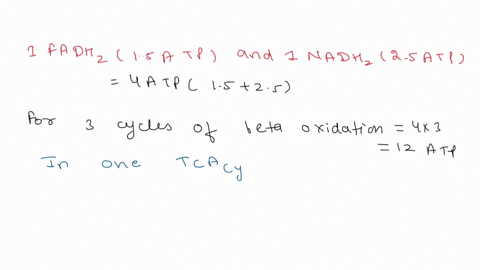 1 FADH2 (1.5 ATP) and 1 NADH2 (2.5ATP)
= 4 ATP ( 1.5 + 2.5)
For 3 cycles of beta oxidation = 4x3
= 12 ATP
In one TCA Cy